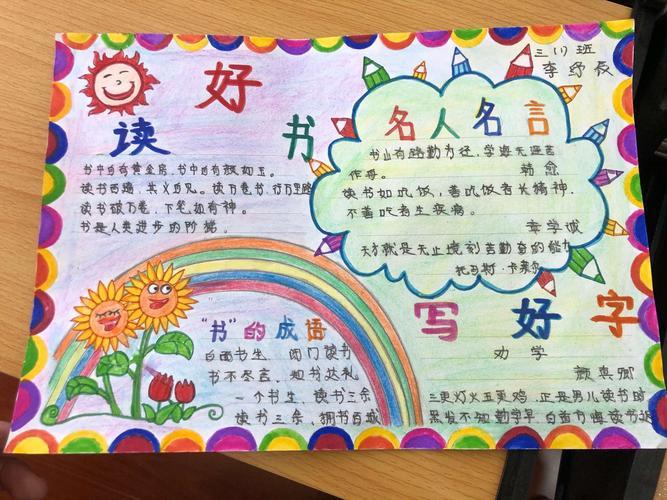 三(1)班
李纾辰
好
读书
书中自有黄金屋,书中自有颜如玉。
读书百遍,其义自见。读万卷书,行万里路
读书破万卷,下笔如有神。
书是人类进步的阶梯。
名人名言
书山有路勤为径,学海无涯苦
作舟。 韩愈
读书如吃饭,善吃饭者长精神,
不善吃者生疾病。
章学诚
天才就是无止境刻苦勤奋的能力
托马斯·卡莱尔
"书"的成语
白面书生、闭门读书
书不尽言、知书达礼
一个书生、读书三余
读书三余、拥书百城
写好字
劝学
颜真卿
三更灯火五更鸡,正是男儿读书时
黑发不知勤学早,白首方悔读书迟